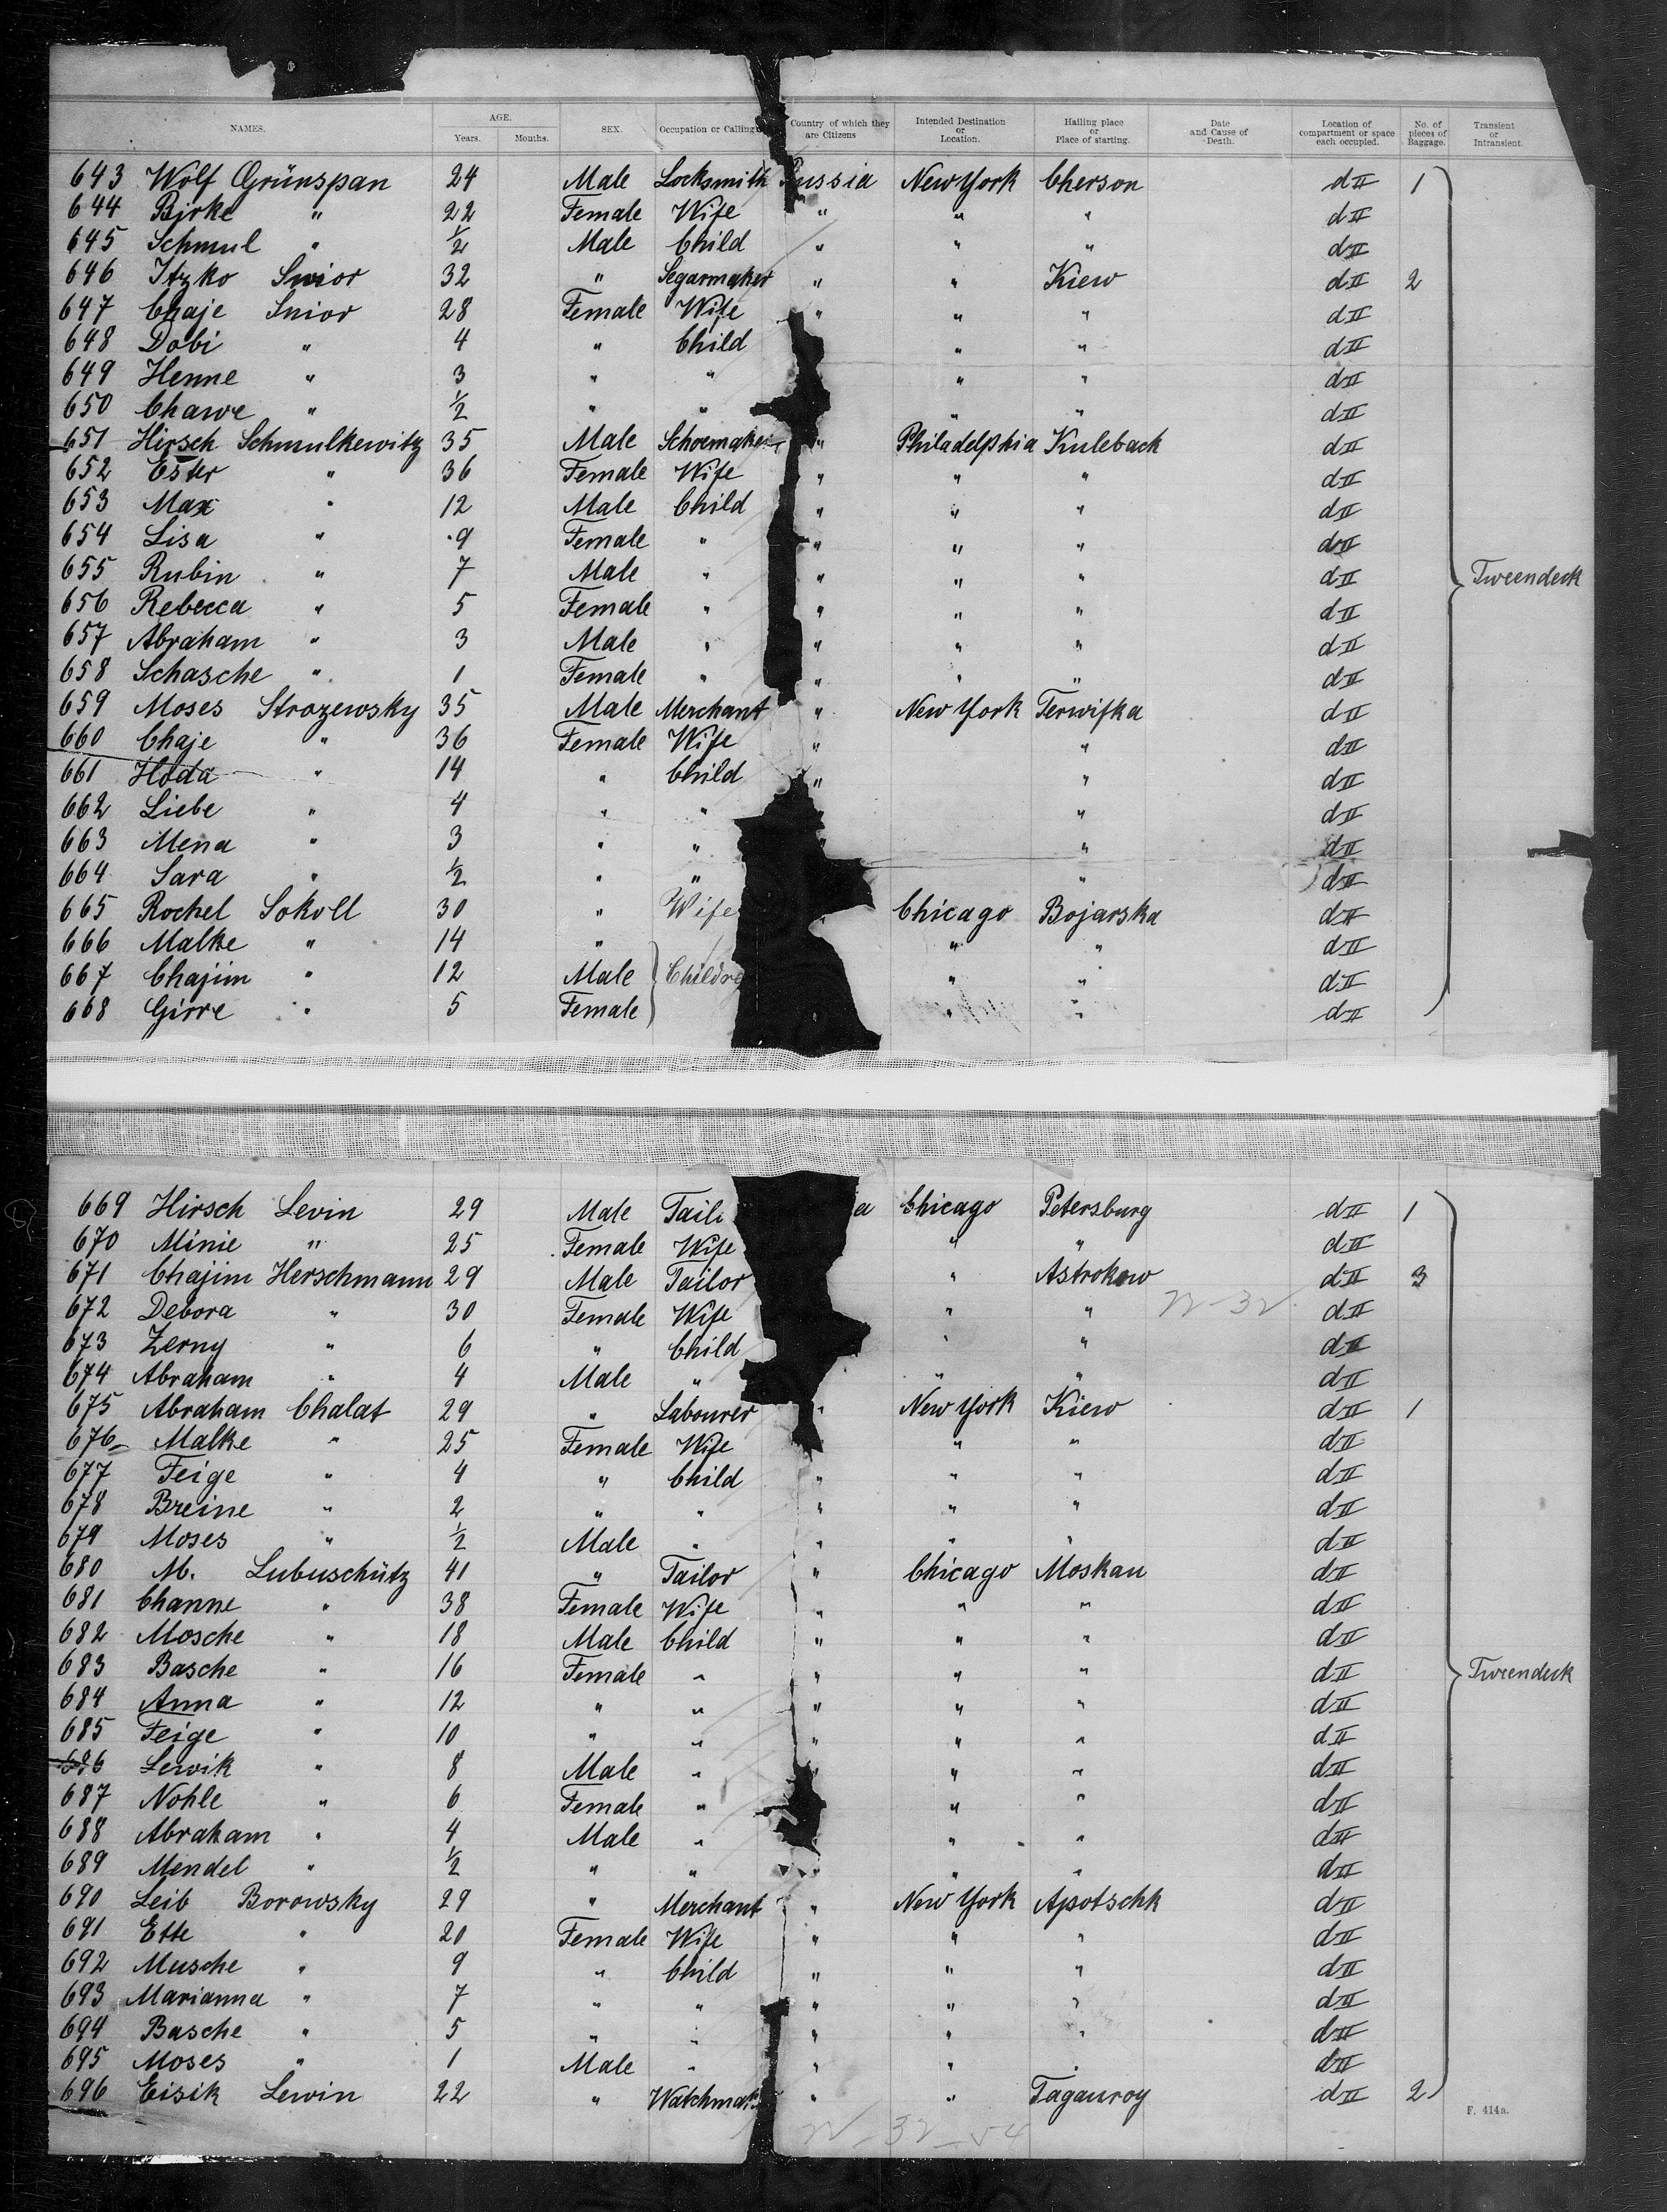 NAMES. AGE. Years. Months. SEX. Occupation or Calling Country of which they are Citizens Intended Destination or Location. Hailing place or Place of starting. Date and Cause of Death. Location of compartment or space each occupied. No. of pieces of Baggage. Transient or Intransient.
643 Wolf Grünspan 24 Male Locksmith Russia New York Cherson d II 1
644 Birke " 22 Female Wife " " " d II
645 Schmul " 1/2 Male Child " " " d II
646 Itzko Snior 32 " Segarmaker " " Kiew d II 2
647 Chaje Snior 28 Female Wife " " " d II
648 Dobi " 4 " Child " " d II
649 Henne " 3 " " " " d II
650 Chawe " 1/2 " " " " d II
651 Hirsch Schmulkewitz 35 Male Schoemaker " Philadelphia Kuleback d II
652 Ester " 36 Female Wife " " " d II
653 Max " 12 Male Child " " " d II
654 Lisa " 9 Female " " " " d II
655 Rubin " 7 Male " " " " d II Tweendeck
656 Rebecca " 5 Female " " " " d II
657 Abraham " 3 Male " " " " d II
658 Schasche " 1 Female " " " " d II
659 Moses Strazewsky 35 Male Merchant " New York Terwifka d II
660 Chaje " 36 Female Wife " " d II
661 Hoda " 14 " Child " " d II
662 Liebe " 4 " " " d II
663 Mena " 3 " " " " d II
664 Sara " 1/2 " " " d II
665 Rochel Sokoll 30 " Wife Chicago Bojarska d II
666 Malke " 14 " " " d II
667 Chajim " 12 Male Childre " " d II
668 Girre " 5 Female " " d II
669 Hirsch Levin 29 Male Tail a Chicago Petersburg d II 1
670 Minie " 25 Female Wife " " d II
671 Chajim Herschmann 29 Male Tailor " Astrokow d II 3
672 Debora " 30 Female Wife " " d II
673 Zerny " 6 " Child " " d II
674 Abraham " 4 Male " " " d II
675 Abraham Chalat 29 " Labourer " New York Kiew d II 1
676 Malke " 25 Female Wife " " d II
677 Feige " 4 " Child " " " d II
678 Breine " 2 " " " " " d II
679 Moses " 1/2 Male " " " " d II
680 M. Lubuschütz 41 " Tailor " Chicago Moskau d II
681 Channe " 38 Female Wife " " " d II
682 Mosche " 18 Male Child " " " d II
683 Basche " 16 Female " " " " d II Tweendeck
684 Anna " 12 " " " " " d II
685 Feige " 10 " " " " " d II
686 Lewik " 8 Male " " " d II
687 Nohle " 6 Female " " " d II
688 Abraham " 4 Male " " " d II
689 Mendel " 1/2 " " " " " d II
690 Leib Borowsky 29 " Merchant " New York Apotschk d II
691 Ette " 20 Female Wife " " " d II
692 Musche " 9 " Child " " " d II
693 Marianna " 7 " " " " " d II
694 Basche " 5 " " " " " d II
695 Moses " 1 Male " " " " d II
696 Eisik Lewin 22 " Watchmak " " Taganrog d II 2
F. 414a.